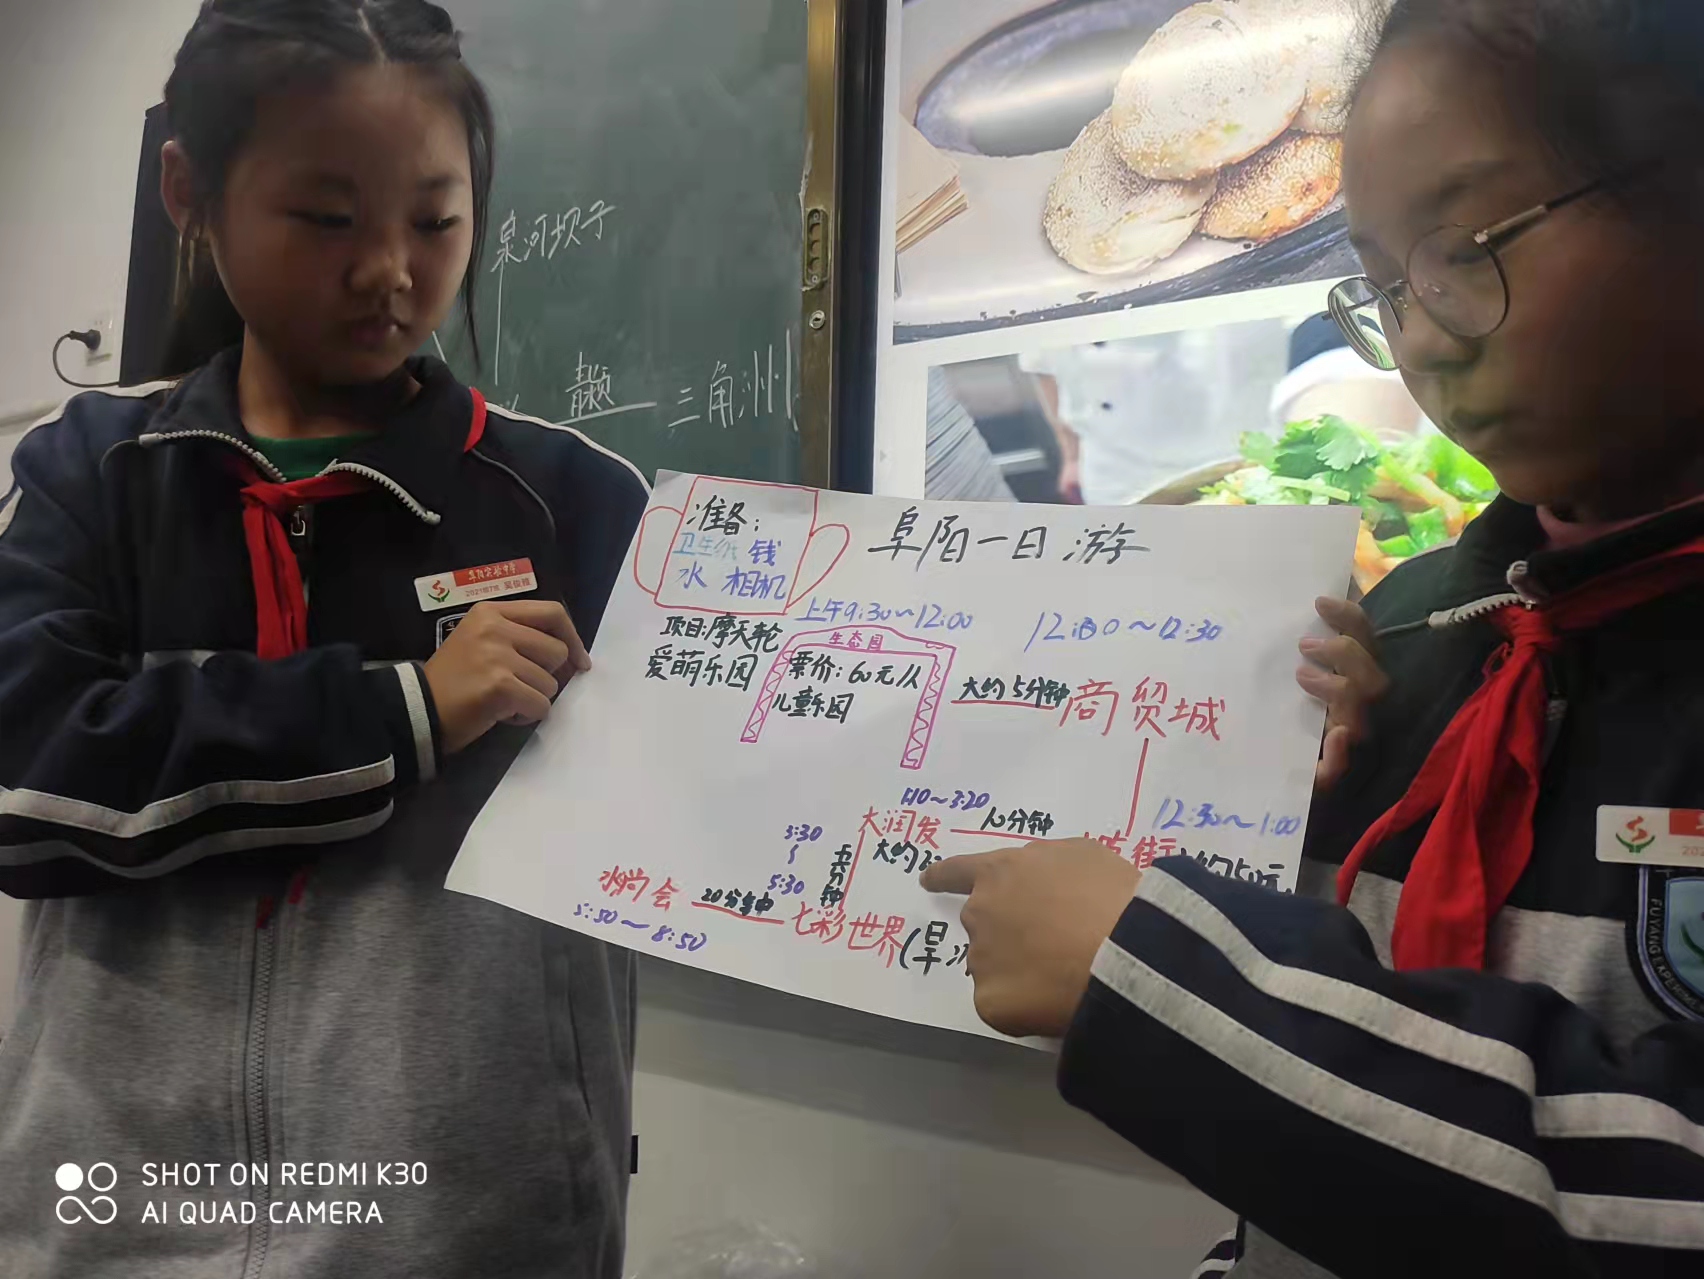 泉河坝子
颍
三角洲
准备:
卫生纸 钱
水 相机
阜阳一日游
上午9:30~12:00
12:00~12:30
项目:摩天轮
爱萌乐园
生态园
票价:60元/人
儿童乐园
大约5分钟
商贸城
1:10~3:20
大润发
10分钟
大约
12:30~1:00
街
约50元
五分钟
3:30
~
5:30
水韵会
20分钟
七彩世界(旱
5:50~8:50
阜阳实验中学
FUYANG EXPERIM
SHOT ON REDMI K30
AI QUAD CAMERA